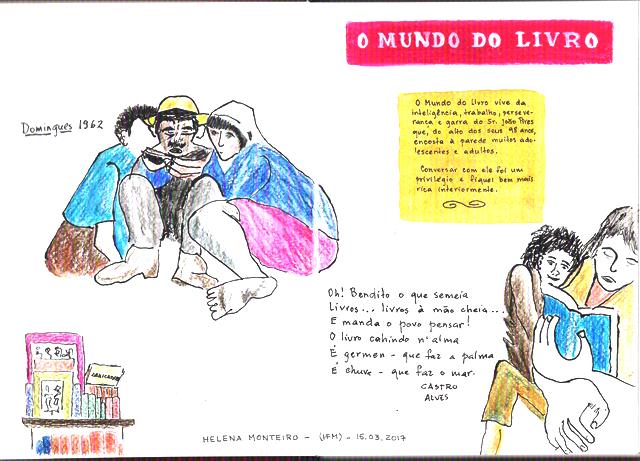 O MUNDO DO LIVRO
Domingues 1962
O Mundo do Livro vive da
inteligência, trabalho, perseve-
rança e garra do Sr. João Pires
que, do alto dos seus 98 anos,
encosta à parede muitos ado-
lescentes e adultos.
Conversar com ele foi um
privilégio e fiquei bem mais
rica interiormente.
Oh! Bendito o que semeia
Livros... livros à mão cheia...
E manda o povo pensar!
O livro cahindo n'alma
É germen - que faz a palma
É chuva - que faz o mar.
CASTRO
ALVES
HELENA MONTEIRO - (IFM) - 15.03.2017